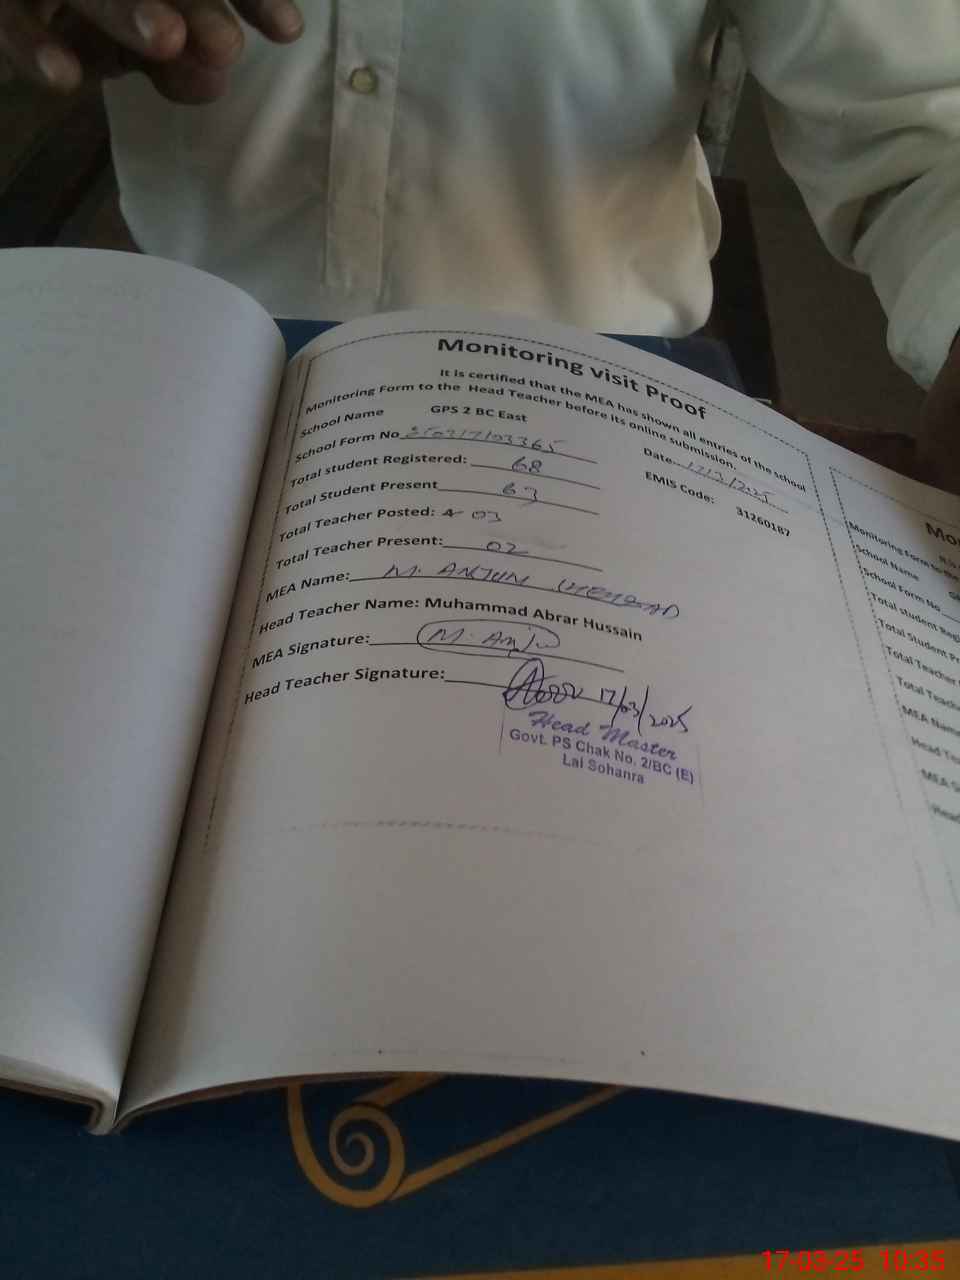 Monitoring visit Proof
It is certified that the MEA has shown all entries of the school
Monitoring Form to the Head Teacher before its online submission.
School Name GPS 2 BC East
Date 17/3/2025
School Form No
EMIS Code: 31260187
Total student Registered: 68
Total Student Present 63
Total Teacher Posted: 03
Total Teacher Present: 02
MEA Name: M. ANJUM
Head Teacher Name: Muhammad Abrar Hussain
MEA Signature: M. Anju
Head Teacher Signature: 17/03/2025
Head Master
Govt. PS Chak No. 2/BC (E)
Lal Sohanra
Monitoring Form to the
School Name
School Form No
Total student
Total Student
Total Teacher
Total
MEA Name
Head
MEA
17-03-25 10:35